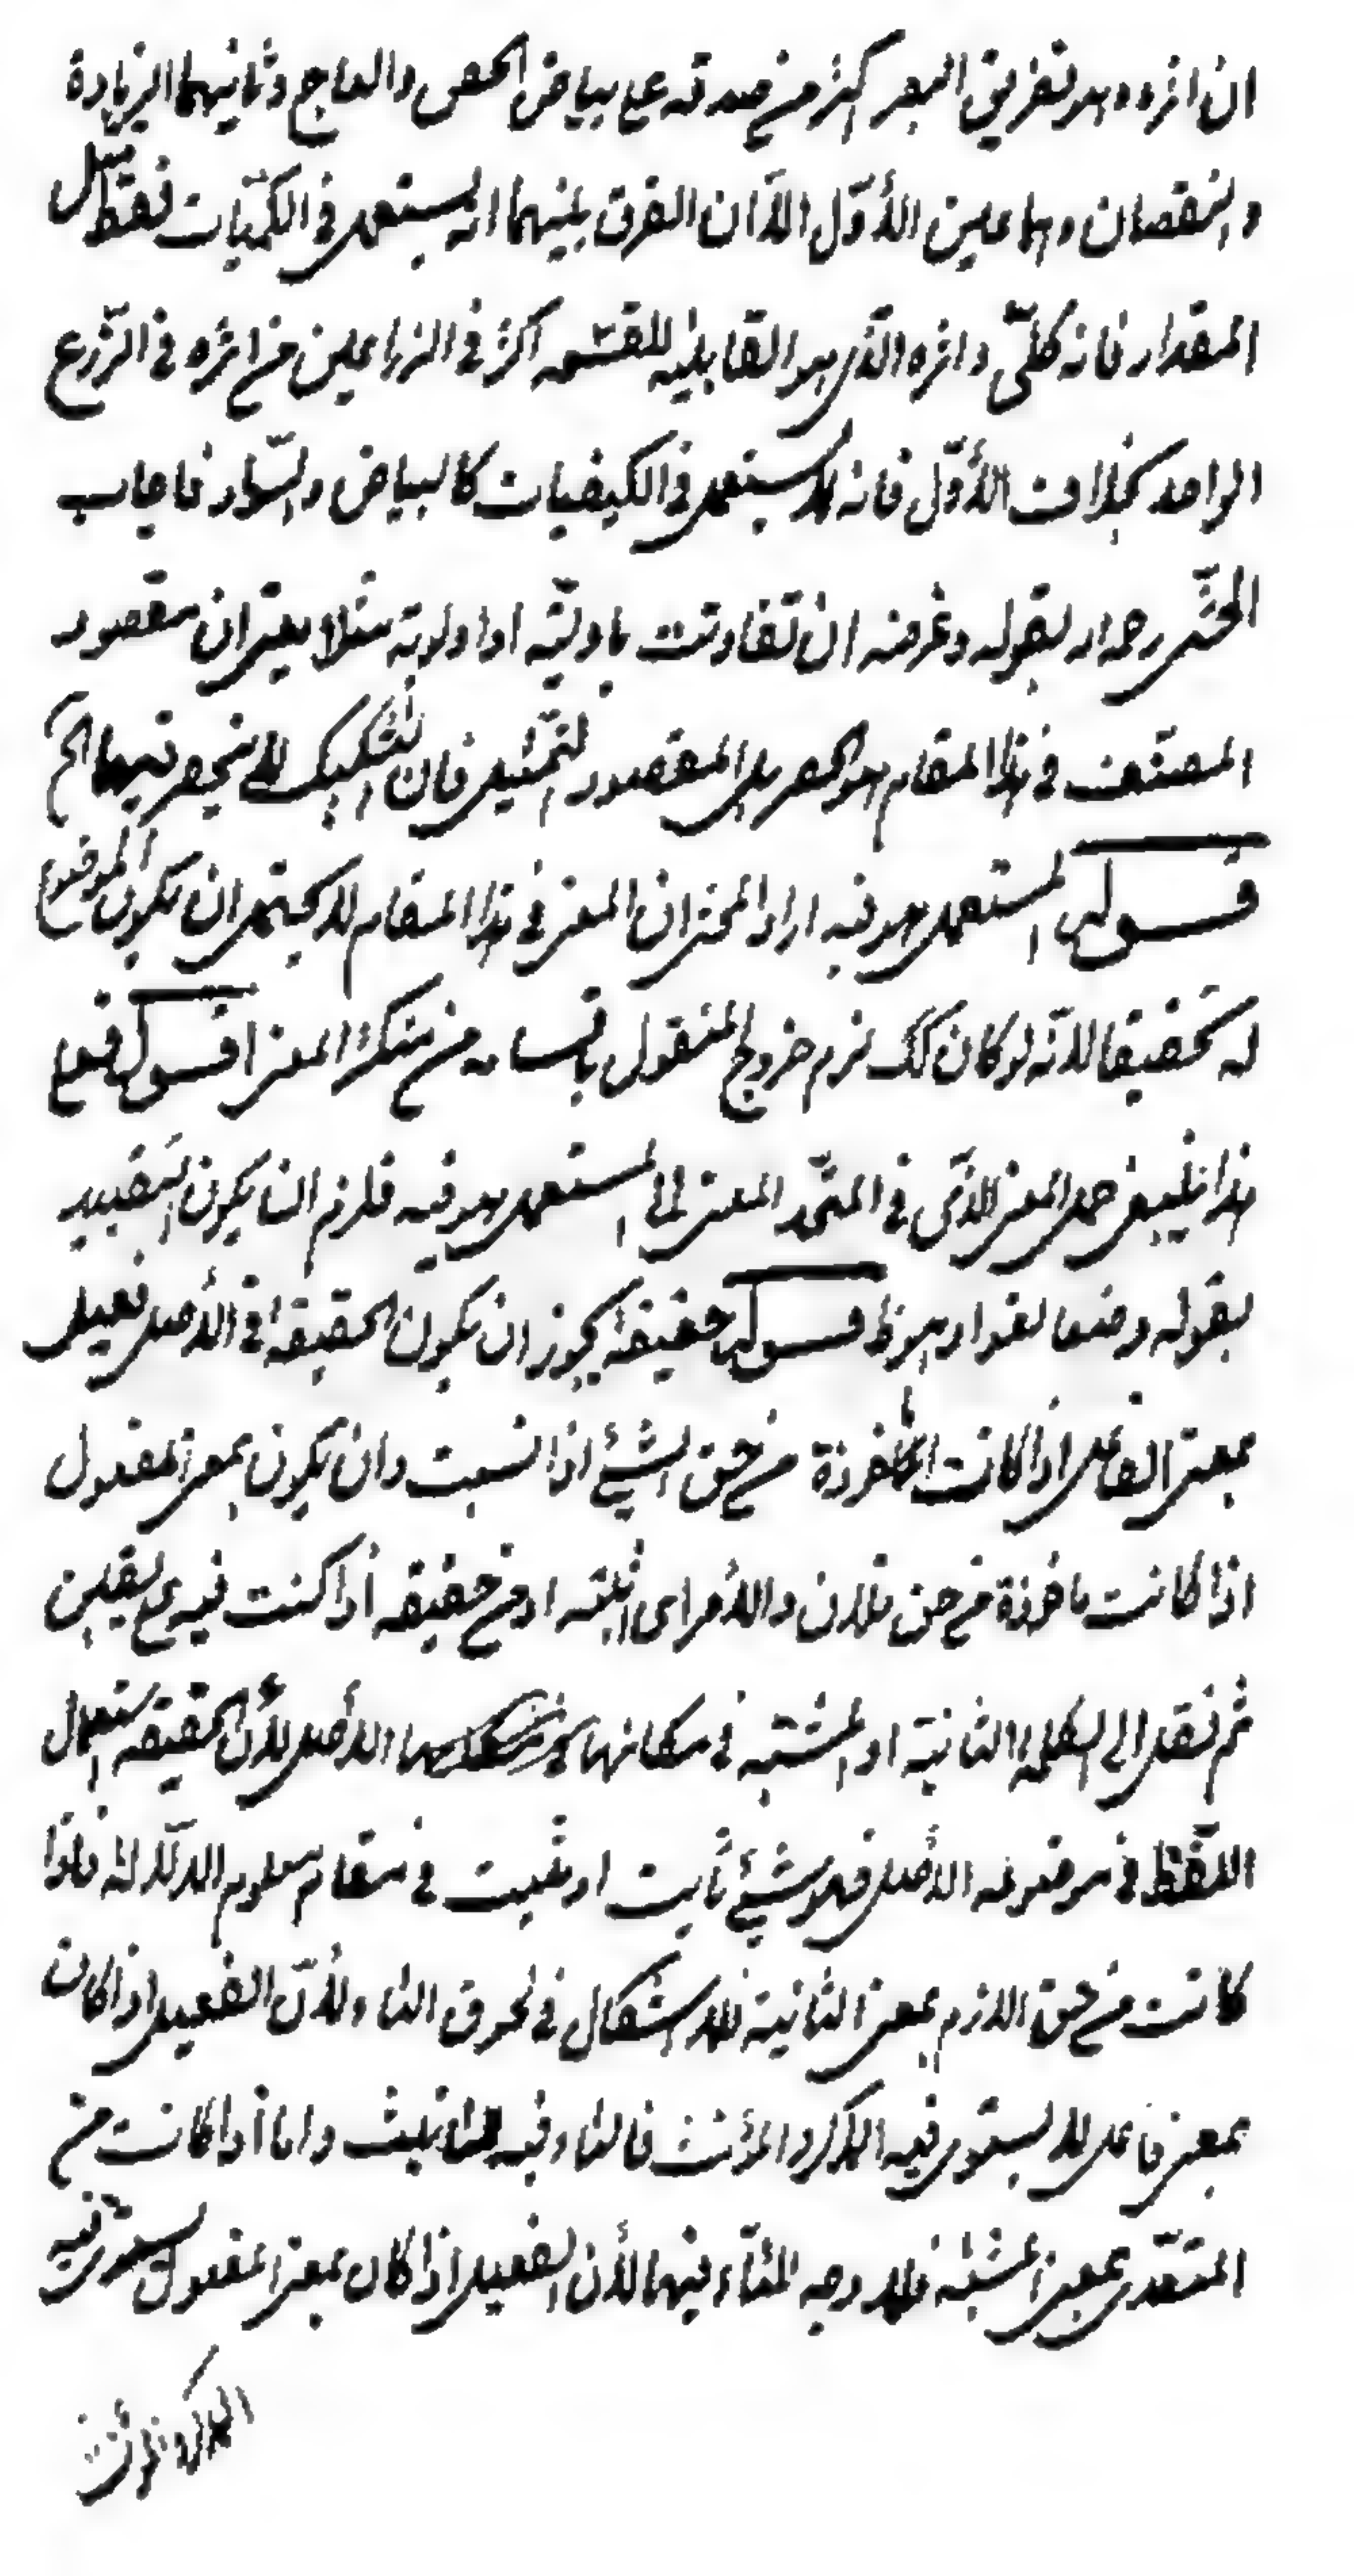 ان اثره وهو تفريق البصر اكثر من صدقه على بياض الجص والعاج وثانيهما الزيادة
والنقصان وهما عين الأوّل الاّ ان الفرق بينهما انه يستعمل فى الكميّات فقط مثل
المقدار فانه كلّى واثره الذى هو القابليه للقسمه اكثر فى الزراعين من اثره فى الزّرع
الواحد بخلاف الأوّل فانه يستعمل فى الكيفيات كالبياض والسّواد فاجاب
المحشّى رحمه الله بقوله وغرضه ان تفاوتت باوليّه او اولويّة مثلا يعنى ان مقصود
المصنّف فى هذا المقام هو الحصر بل المقصود التمثيل فان التشكيك لا ينحصر فيهما الخ
قــوله المستعمل هو فيه اراد المحشى ان المعنى فى هذا المقام لا يحتمل ان يكون الموضوع
له تحقيقا لانّه لو كان كك لزم خروج المنقول باقسامه من متكثر المعنى اقــول فعلى
هذا ينبغى حمل المعنى الذى فى المتّحد المعنى المستعمل هو فيه فلزم ان يكون التقييد
بقوله وضعا لغوا وهو ظ قــوله حقيقة يجوز ان يكون الحقيقة فى الأصل فعيل
بمعنى الفاعل اذا كانت مأخوذة من حق الشيئ اذا ثبت وان يكون بمعنى المفعول
اذا كانت ماخوذة من حق فلان والأمر اى اثبته او من حقيقه اذا كنت فيه على يقين
ثم نقل الى الكلمه الثانية او المثبتة فى مكانها الاصلى لأن الحقيقه استعمال
اللّفظ فى موضوعه الأصلى فهو شيئ ثابت او مثبت فى مقام معلوم الدّلالة فاذا
كانت من حق اللازم بمعنى الثانية فلا اشكال فى لحوق التاء لأنّ الفعيل اذا كان
بمعنى فاعل لا يستوى فيه المذكر والمؤنث فالتاء فيه للتانيث واما اذا كانت من
المتعّدى بمعنى المثبتة فلا وجه للتّاء فيها لأن الفعيل اذا كان بمعنى المفعول يستوى فيه
المذكر والمؤنث